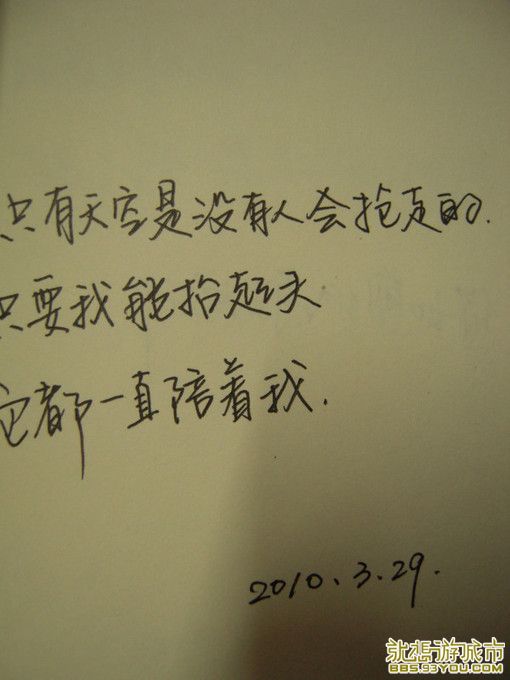 只有天空是没有人会抢走的.
只要我能抬起头
它都一直陪着我.
2010.3.29.
就想游城市
BBS.93YOU.COM